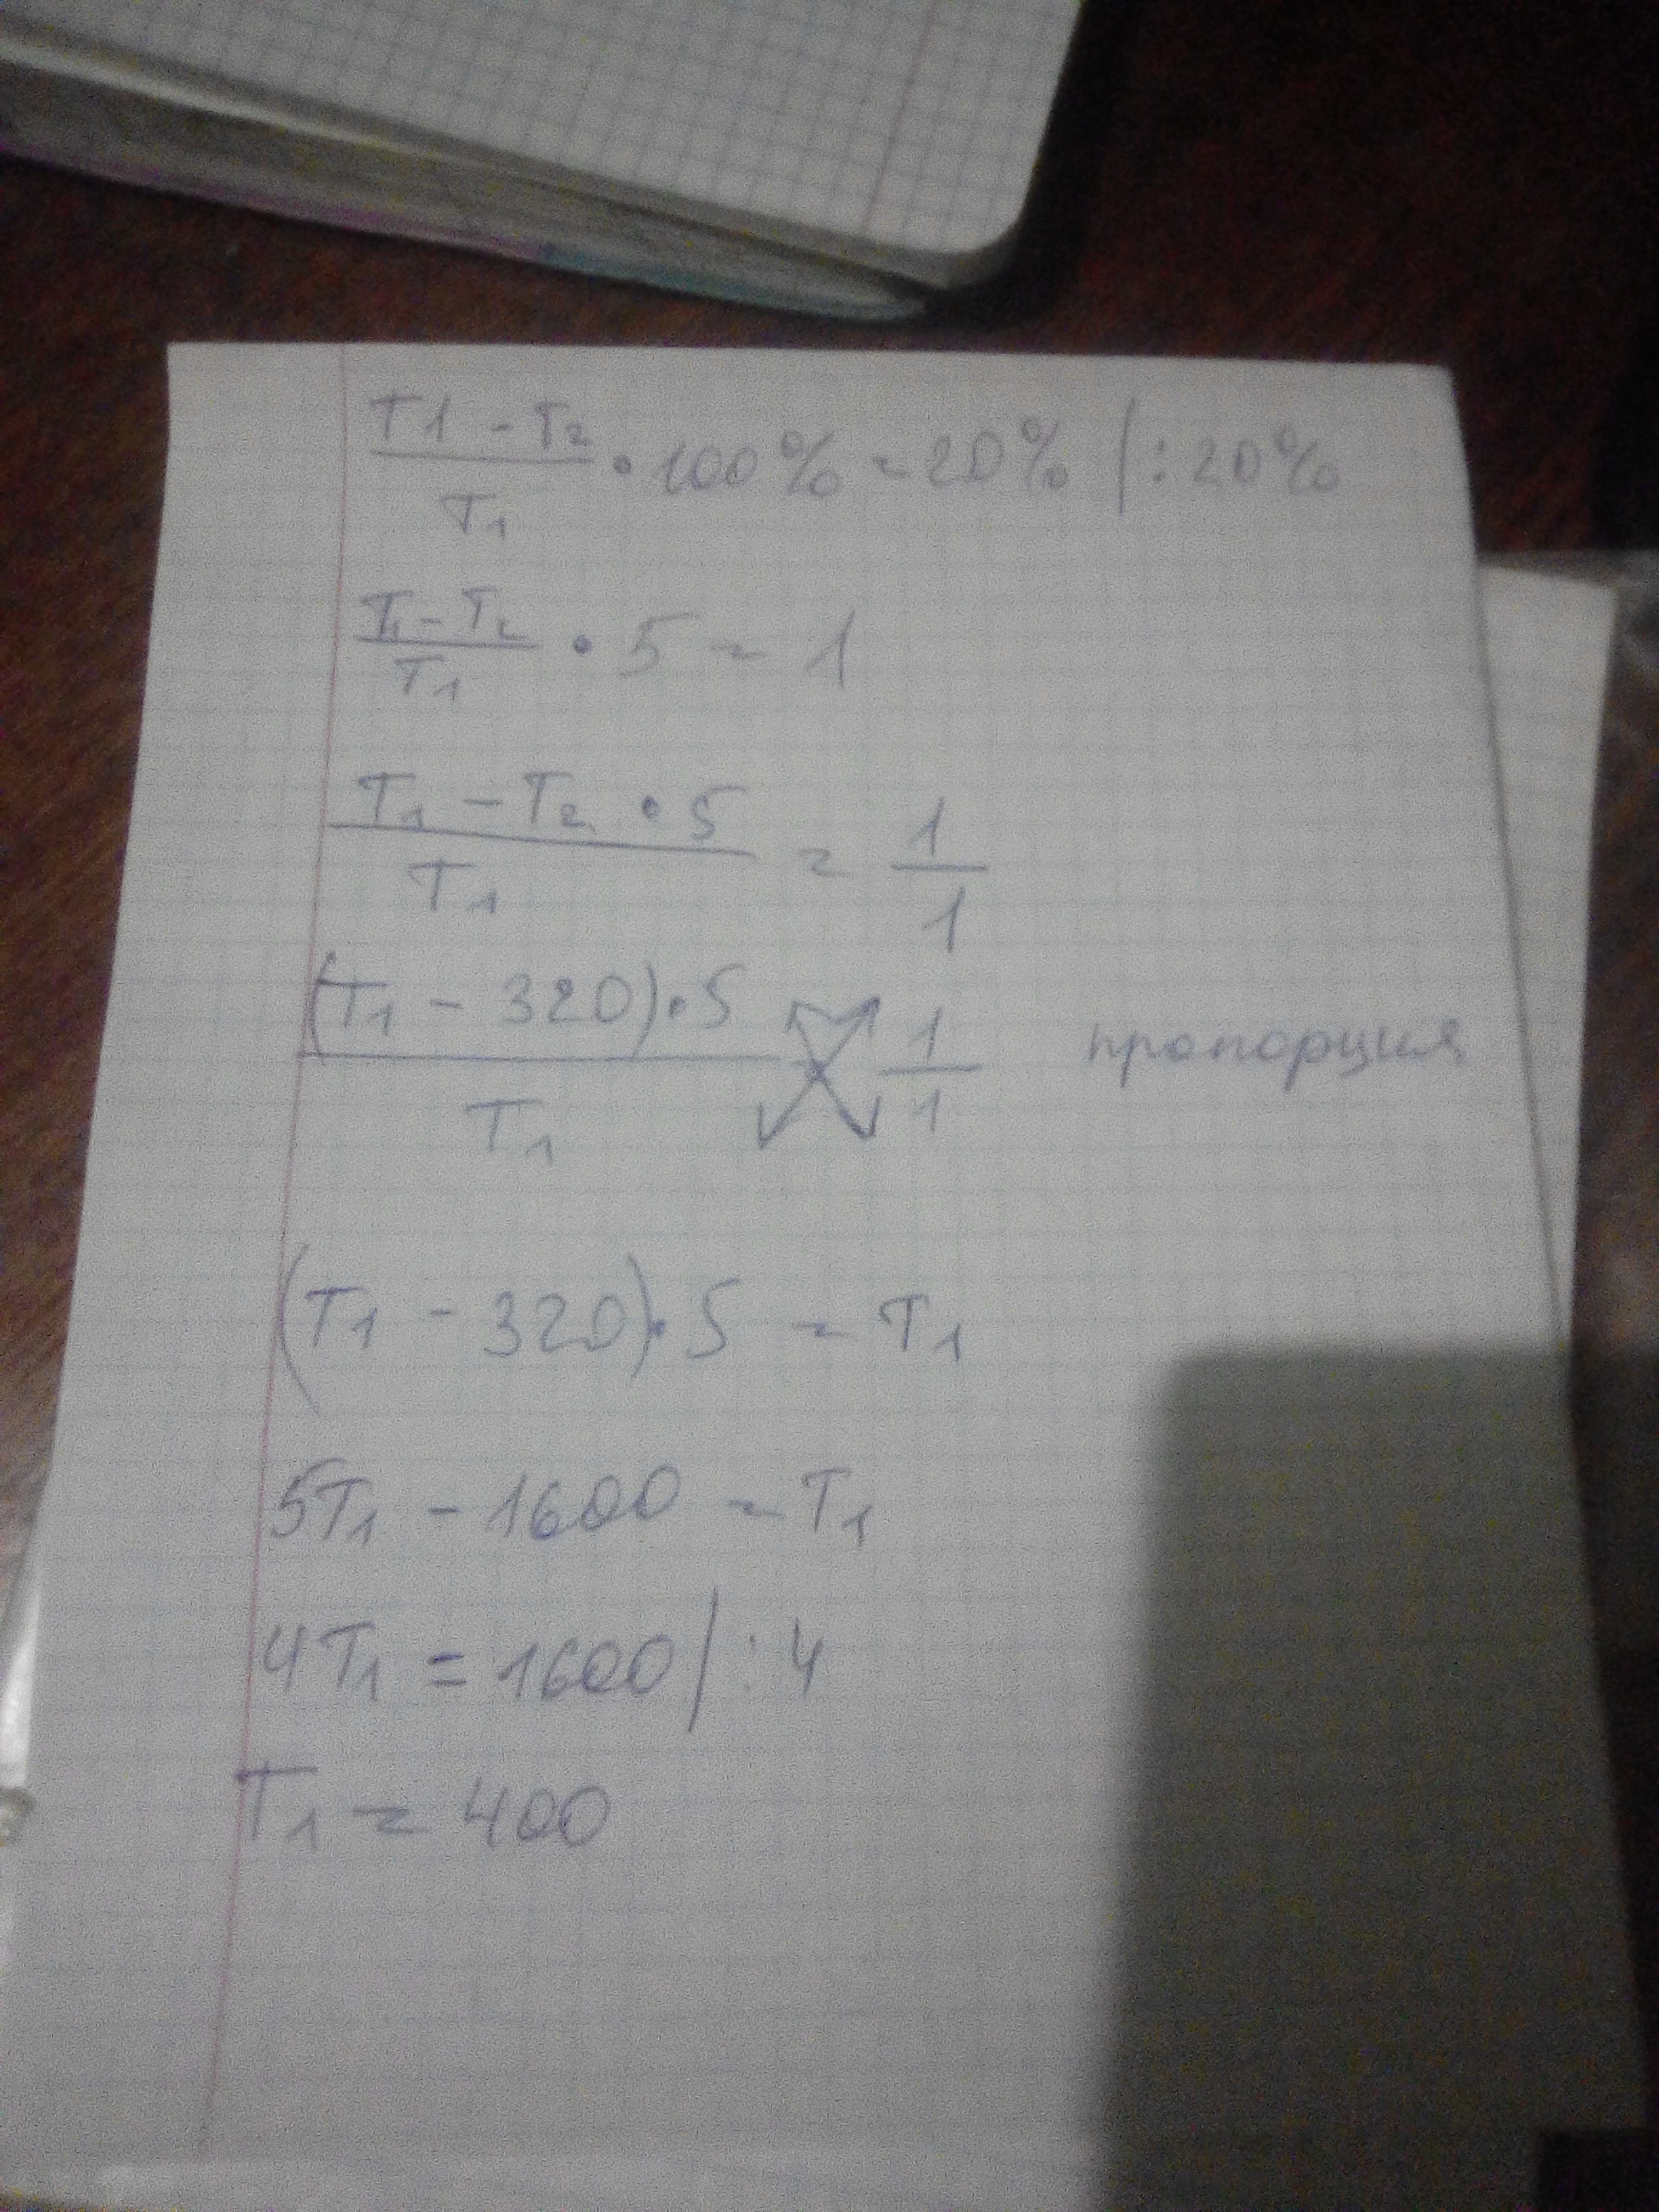 T1 - T2 / T1 • 100% = 20% | : 20%
T1 - T2 / T1 • 5 = 1
T1 - T2 • 5 / T1 = 1 / 1
(T1 - 320) • 5 / T1 1 / 1 пропорция
(T1 - 320) • 5 = T1
5T1 - 1600 = T1
4T1 = 1600 | : 4
T1 = 400